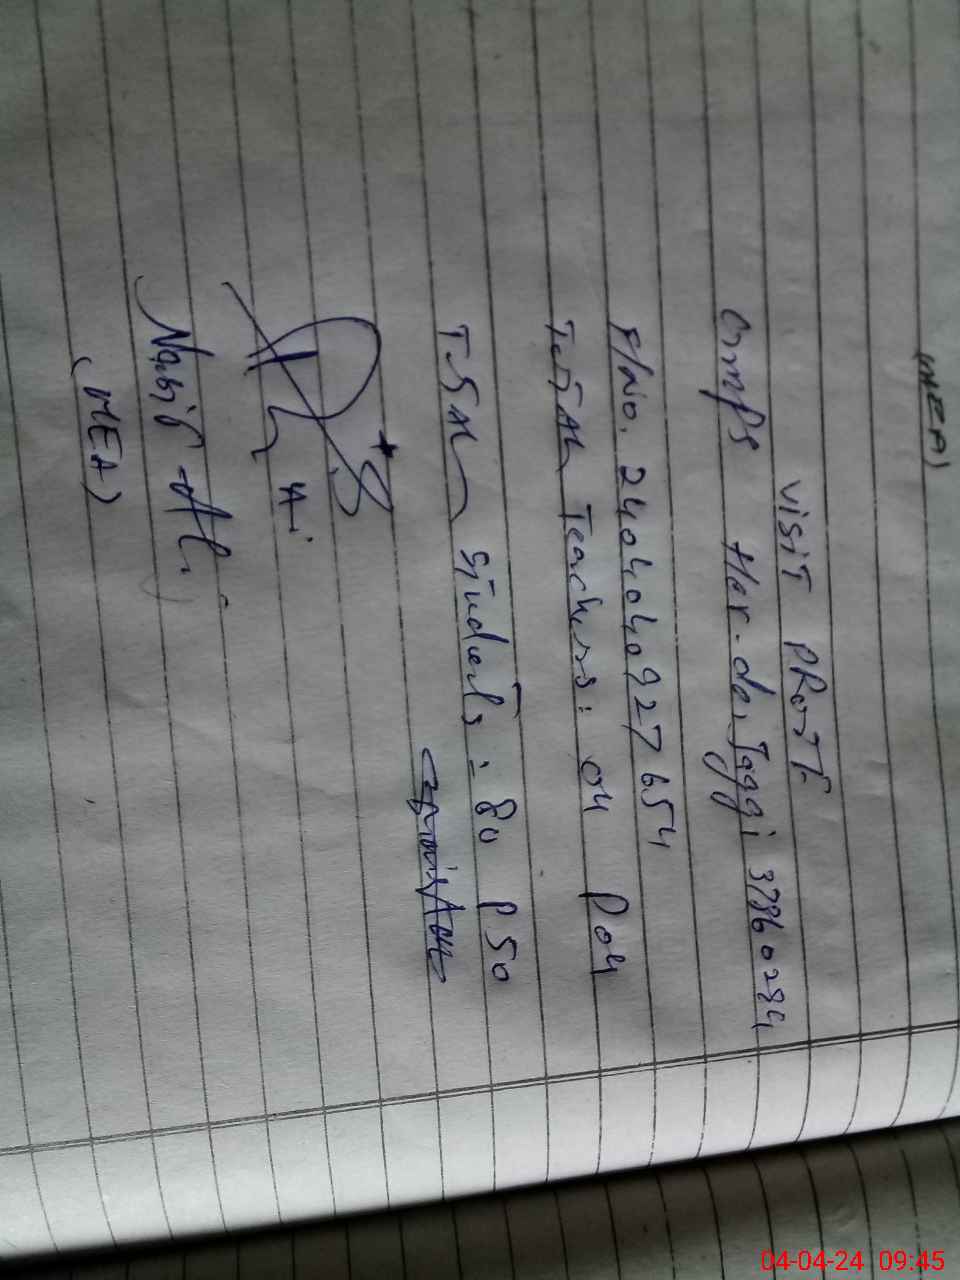 (MEA)
VISIT PROTT:
GMPS Har-do-Jaggi 37860284
F/No. 2404040927654
Total Teachers: 04 P04
Total Students = 80 P50
Nasif Al.
(MEA)
04-04-24 09:45